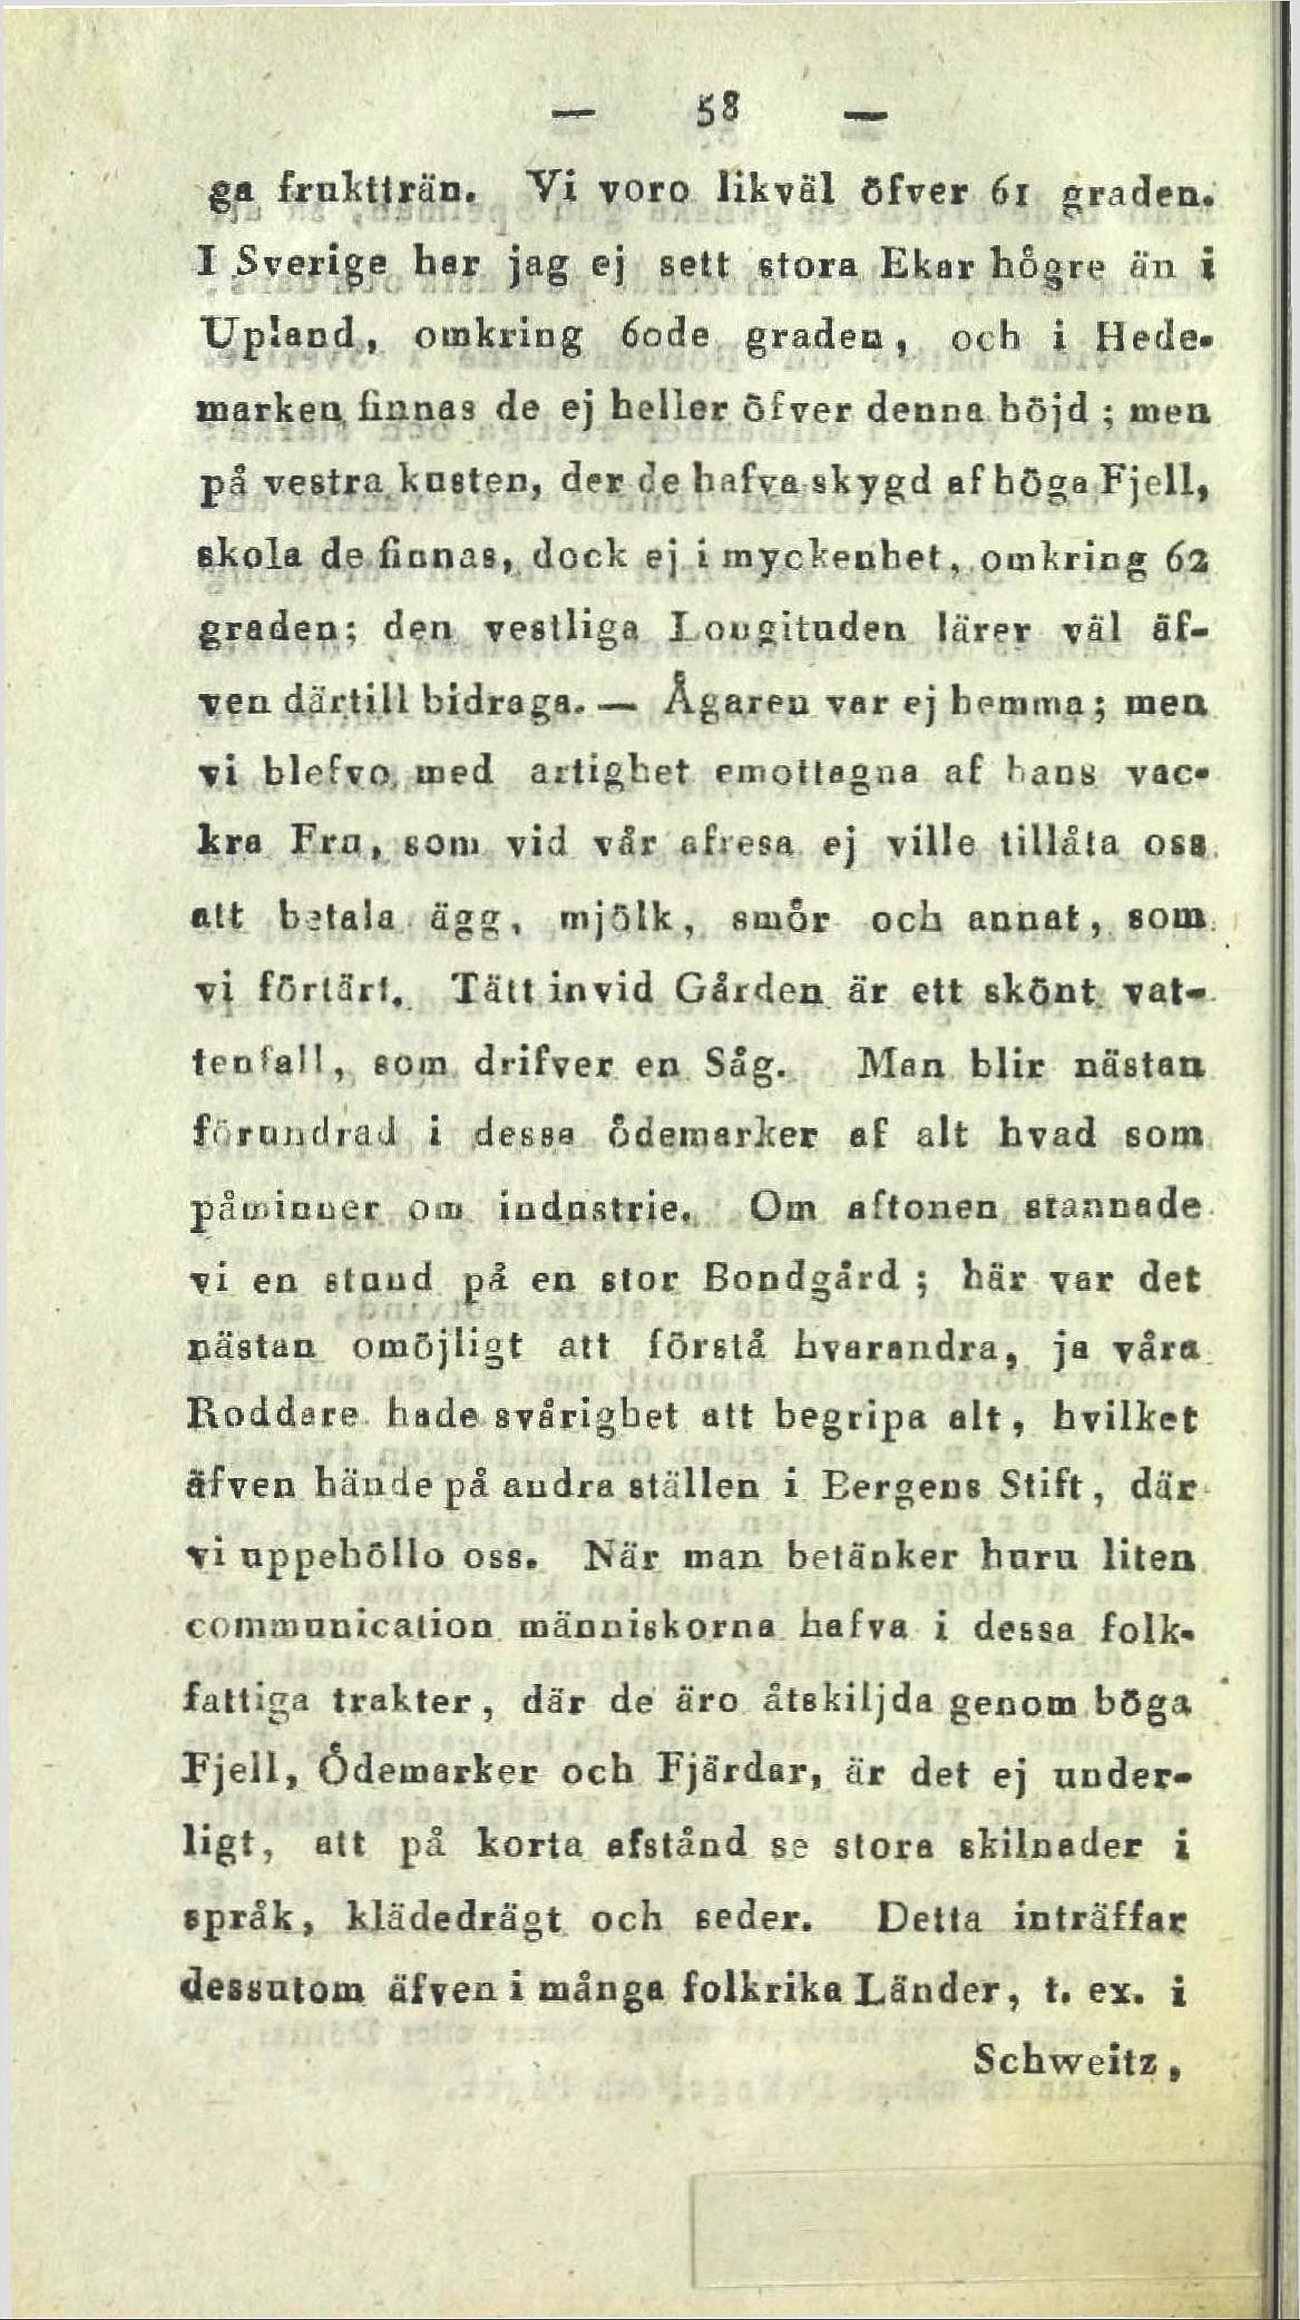 — 58 —
ga fruktträn. Vi voro likväl öfver 61 graden.
I Sverige har jag ej sett stora Ekar högre än i
Upland, omkring 60de graden, och i Hede-
marken finnas de ej heller öfver denna höjd; men
på vestra kusten, der de hafva skygd af höga Fjell,
skola de finnas, dock ej i myckenhet, omkring 62
graden; den vestliga Longituden lärer väl äf-
ven därtill bidraga. — Ågaren var ej hemma; men
vi blefvo med artighet emottagna af hans vac-
kra Fru, som vid vår afresa ej ville tillåta oss
att betala ägg, mjölk, smör och annat, som
vi förtärt. Tätt invid Gården är ett skönt vat-
tenfall, som drifver en Såg. Man blir nästan
förundrad i dessa ödemarker af alt hvad som
påminner om industrie. Om aftonen stannade
vi en stund på en stor Bondgård; här var det
nästan omöjligt att förstå hvarandra, ja våra
Roddare hade svårighet att begripa alt, hvilket
äfven hände på andra ställen i Bergens Stift, där
vi uppehöllo oss. När man betänker huru liten
communication människorna hafva i dessa folk-
fattiga trakter, där de äro åtskiljda genom höga
Fjell, Ödemarker och Fjärdar, är det ej under-
ligt, att på korta afstånd se stora skilnader i
språk, klädedrägt och seder. Detta inträffar
dessutom äfven i många folkrika Länder, t. ex. i
Schweitz,